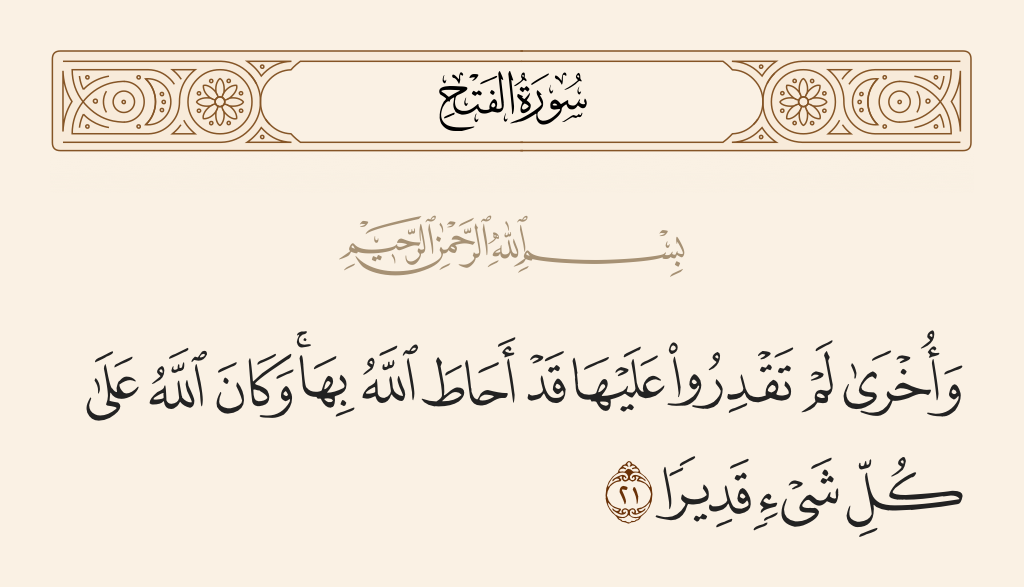 سُورَةُ الفَتْحِ
بِسْمِ ٱللَّهِ ٱلرَّحْمَٰنِ ٱلرَّحِيمِ
وَأُخْرَىٰ لَمْ تَقْدِرُوا۟ عَلَيْهَا قَدْ أَحَاطَ ٱللَّهُ بِهَا ۚ وَكَانَ ٱللَّهُ عَلَىٰ
كُلِّ شَىْءٍ قَدِيرًا ٢١